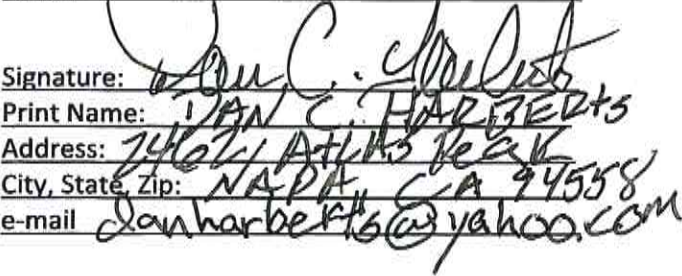 Signature: Dan C. Harberts
Print Name: DAN C. HARBERTS
Address: 2462 Atlas Peak
City, State, Zip: NAPA, CA 94558
e-mail danharberts@yahoo.com